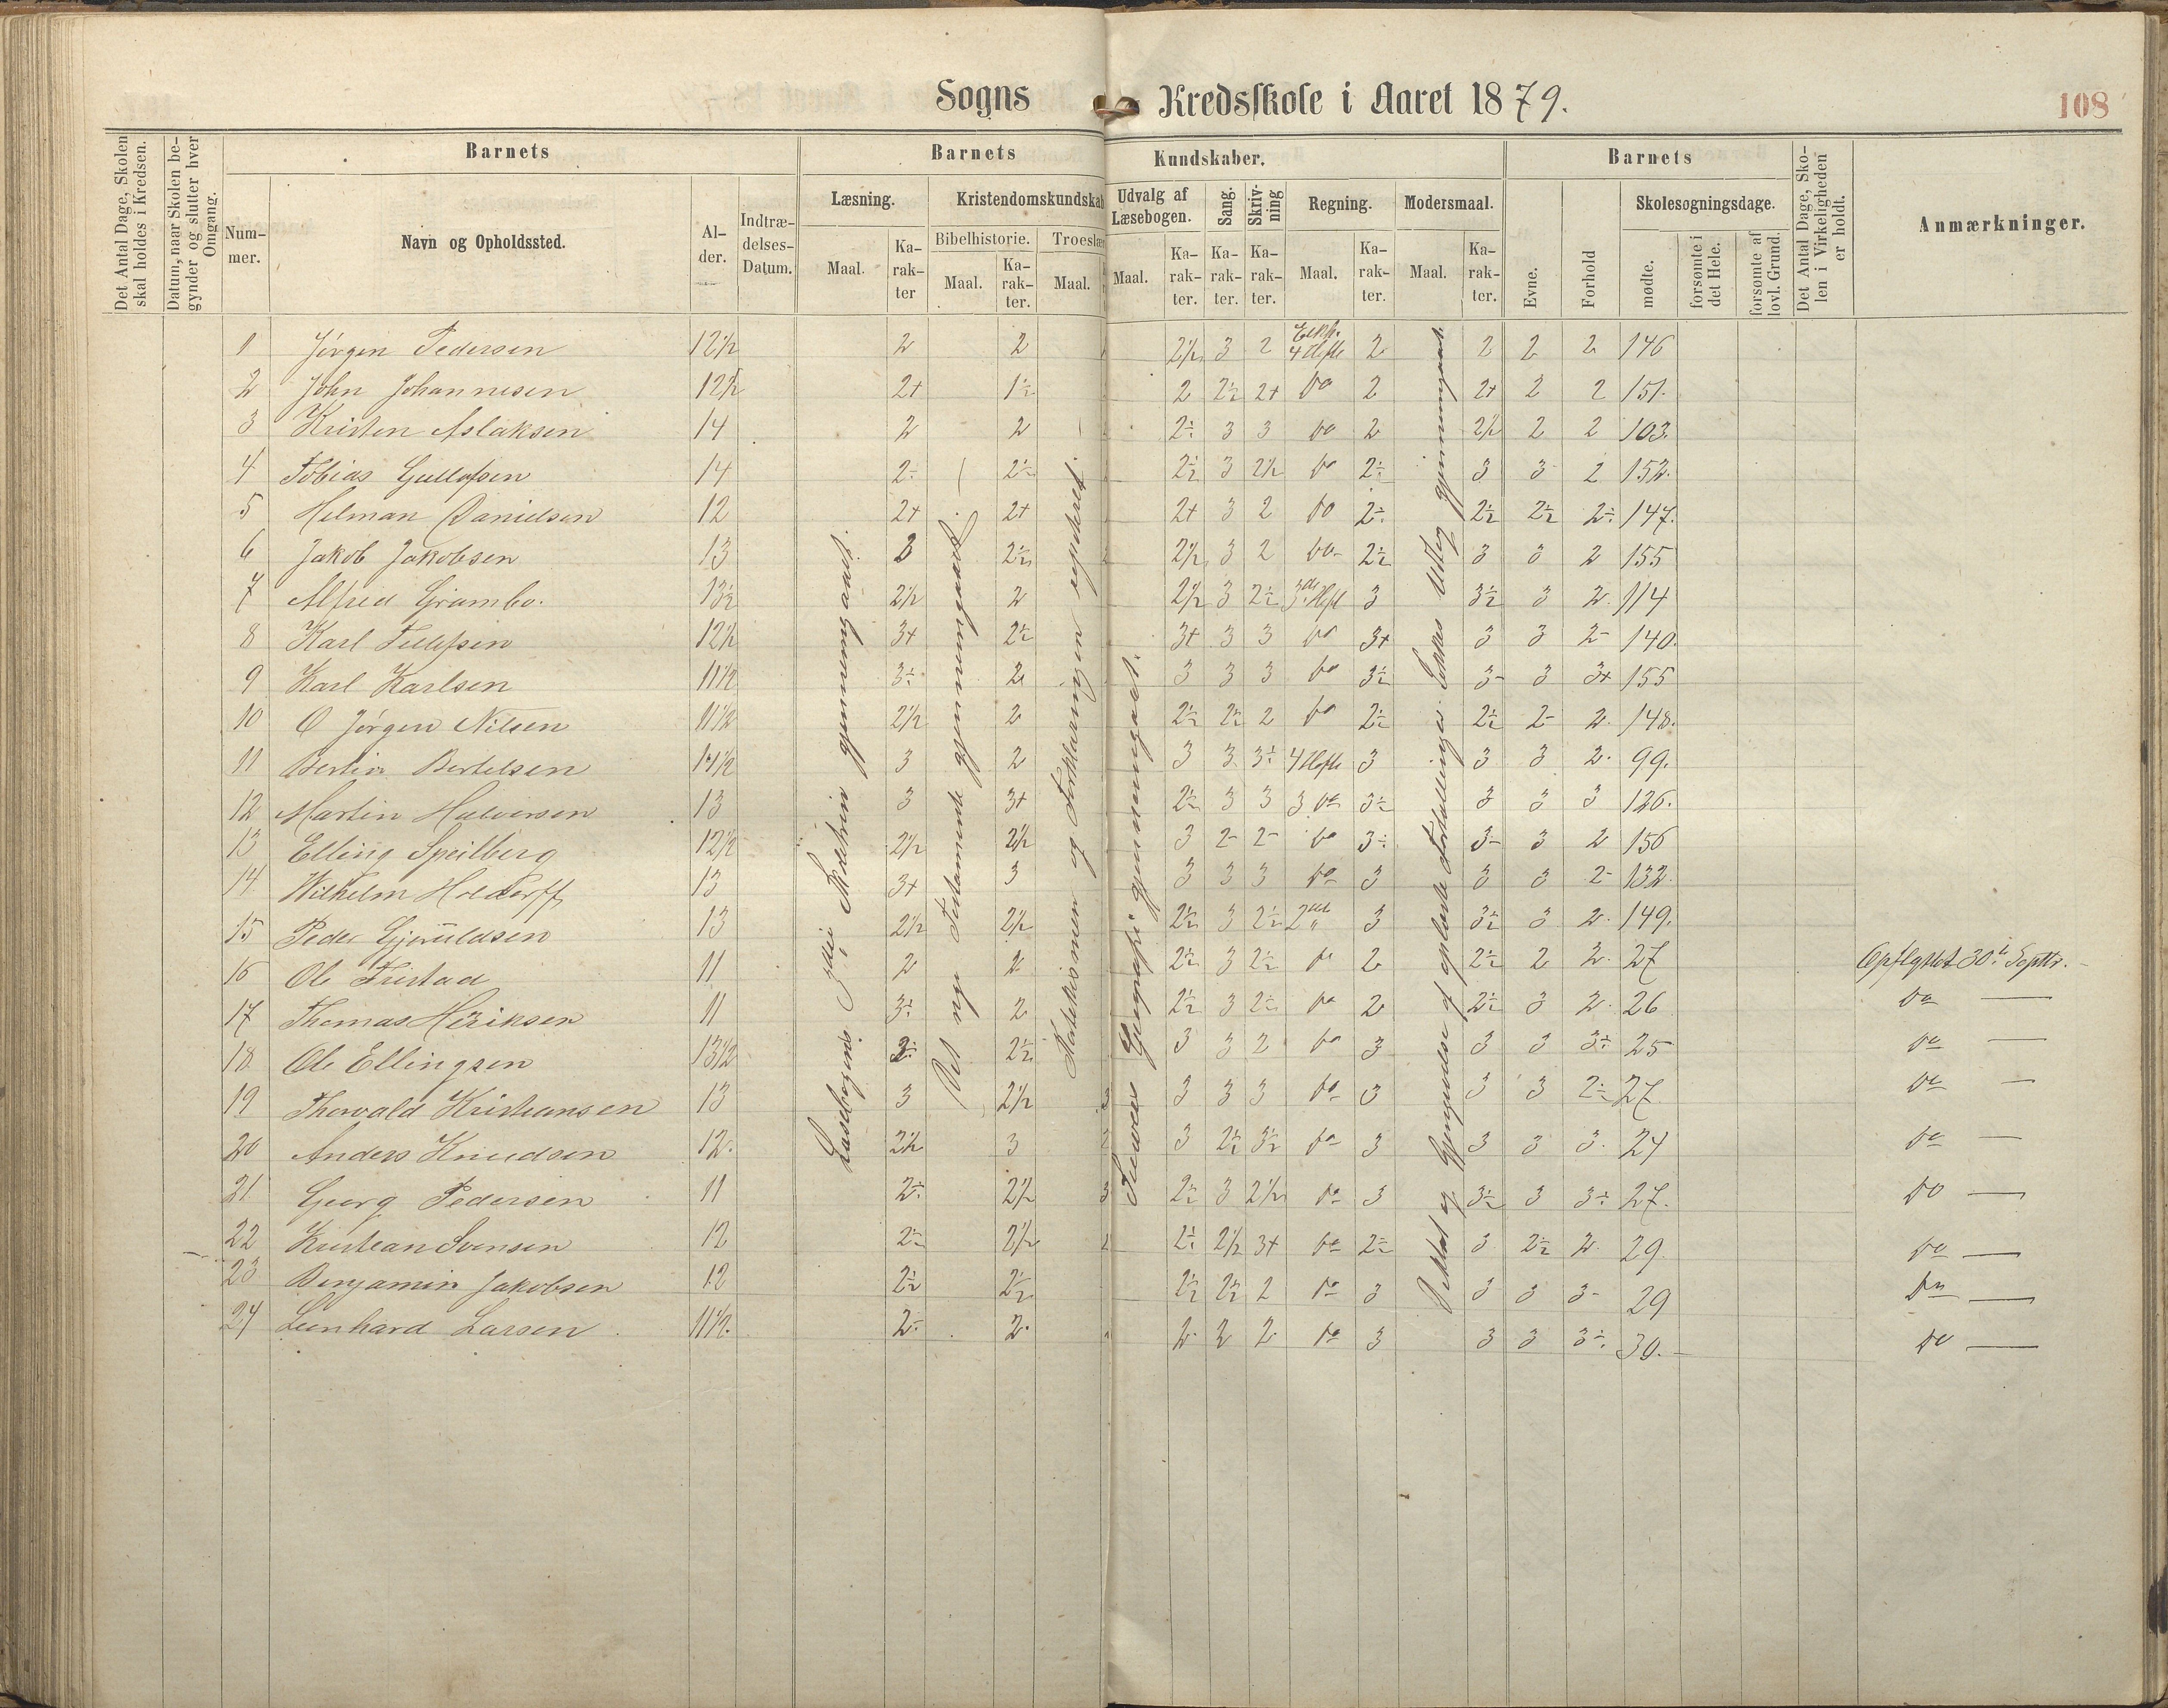 Sogns Kredsskole i Aaret 1879.
108
Det Antal Dage, Skolen skal holdes i Kredsen.
Datum, naar Skolen begynder og slutter hver Omgang.
Barnets
Nummer.
Navn og Opholdssted.
Alder.
Indtrædelses-Datum.
Barnets Kundskaber.
Læsning.
Maal.
Karakter
Kristendomskundskab
Bibelhistorie.
Maal.
Karakter.
Troeslær
Maal.
Udvalg af Læsebogen.
Maal.
Karakter.
Sang.
Karakter.
Skrivning
Karakter.
Regning.
Maal.
Karakter.
Modersmaal.
Maal.
Karakter.
Barnets
Evne.
Forhold
Skolesøgningsdage.
mødte.
forsømte i det Hele.
forsømte af lovl. Grund.
Det Antal Dage, Skolen i Virkeligheden er holdt.
Anmærkninger.
1 Jørgen Pedersen 12½ 2 2 2½ 3 2 4 Hefte 2 2 2 2 146
2 John Johannesen 12½ 2+ 1½ 2 2½ 2+ do 2 2+ 2 2 151.
3 Kristen Aslaksen 14 2 2 2÷ 3 3 do 2 2½ 2 2 103.
4 Tobias Gullofsen 14 2÷ 2½ 2½ 3 2½ do 2÷ 3 3 2 152.
5 Helman Danielsen 12 2+ 2+ 2+ 3 2 do 2÷ 2½ 2½ 2÷ 147.
6 Jakob Jakobsen 13 2 2½ 2½ 3 2 do 2½ 3 3 2 155
7 Alfred Grambo. 13½ 2½ 2 2½ 3 2½ 3de Hefte 3 3½ 3 2. 114
8 Karl Tellefsen 12½ 3+ 2½ 3+ 3 3 do 3+ 3 3 2- 140.
9 Karl Karlsen 11½ 3÷ 2 3 3 3 do 3½ 3- 3 3+ 155
10 O Jørgen Nilsen 11½ 2½ 2 2½ 2½ 2 do 2½ 2½ 2- 2. 148.
11 Bertin Bertelsen 11½ 3 2 3 3 3÷ 4 Hefte 3 3 3 2. 99.
12 Martin Halvorsen 13 3 3+ 2½ 3 3 3 do 3½ 3 3 3 126.
13 Elling Speilberg 12½ 2½ 2½ 3 2- 2- do 3÷ 3- 3 2 156
14. Wilhelm Holdorff 13 3+ 3 3 3 3 do 3 3 3 2- 132.
15 Peder Gjeruldsen 13 2½ 2½ 2½ 3 2½ 2det " 3 3½ 3 2. 149.
16 Ole Fristad 11 2 2 2½ 3 2½ do 2 2½ 2 2. 27 Opflyttet 30te Septbr.
17 Thomas Heriksen 11 3÷ 2 2½ 3 2½ do 2 2½ 3 2. 26 do —
18. Ole Ellingsen 13½ 2÷ 2½ 3 3 2 do 3 3 3 3÷ 25 do —
19 Thorvald Kristiansen 13 3 2½ 3 3 3 3 do 3 3 3 2÷ 27 do —
20 Anders Knudsen 12. 2½ 3 2 3 2½ 3½ do 3 3 3 3. 24 do —
21 Georg Pedersen 11 2÷ 2½ 3 2½ 3 2½ do 3 3½ 3 3÷ 27. do —
22 Kristian Svensen 12 2÷ 2½ 2÷ 2½ 3+ do 2÷ 3 2½ 2. 29. do —
23 Benjamin Jakobsen 12 2½ 2½ 2½ 2½ 2 do 3 3 3 3- 29 do —
24 Leonhard Larsen 11½. 2÷ 2. 2 2 2 do 3 3 3 3÷ 30. do —
Læsebogens 3die Skoletrin gjennemgaaet.
Det nye Testamente gjennemgaaet.
Katekismen og Forklaringen repeteret.
Geografi gjennemgaaet.
Diktat og Gjengivelse af oplæste Fortællinger. gjennemgaaet.